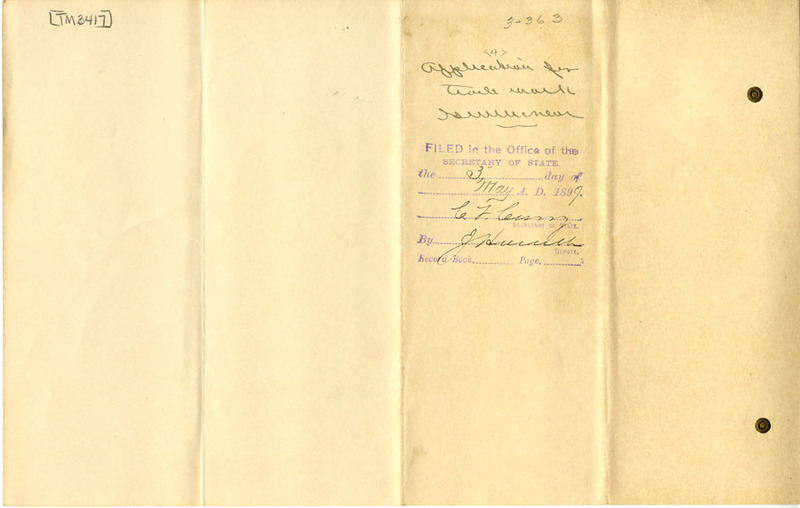 [TM3417]
3-363
<4>
Application for
trade mark
FILED in the Office of the
SECRETARY OF STATE.
the 3 day of
May A. D. 1899.
C F Curry
SECRETARY OF STATE.
By J Hoesch
DEPUTY.
Record Book, Page,